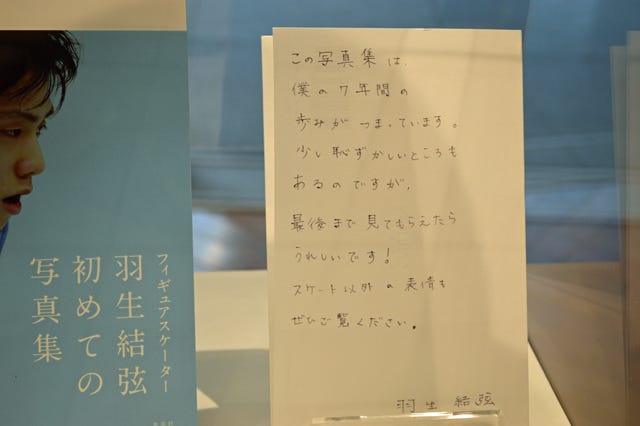 フィギュアスケーター
羽生結弦
初めての
写真集
この写真集は、
僕の7年間の
歩みがつまっています。
少し恥ずかしいところも
あるのですが、
最後まで見てもらえたら
うれしいです!
スケート以外の表情も
ぜひご覧ください。
羽生結弦